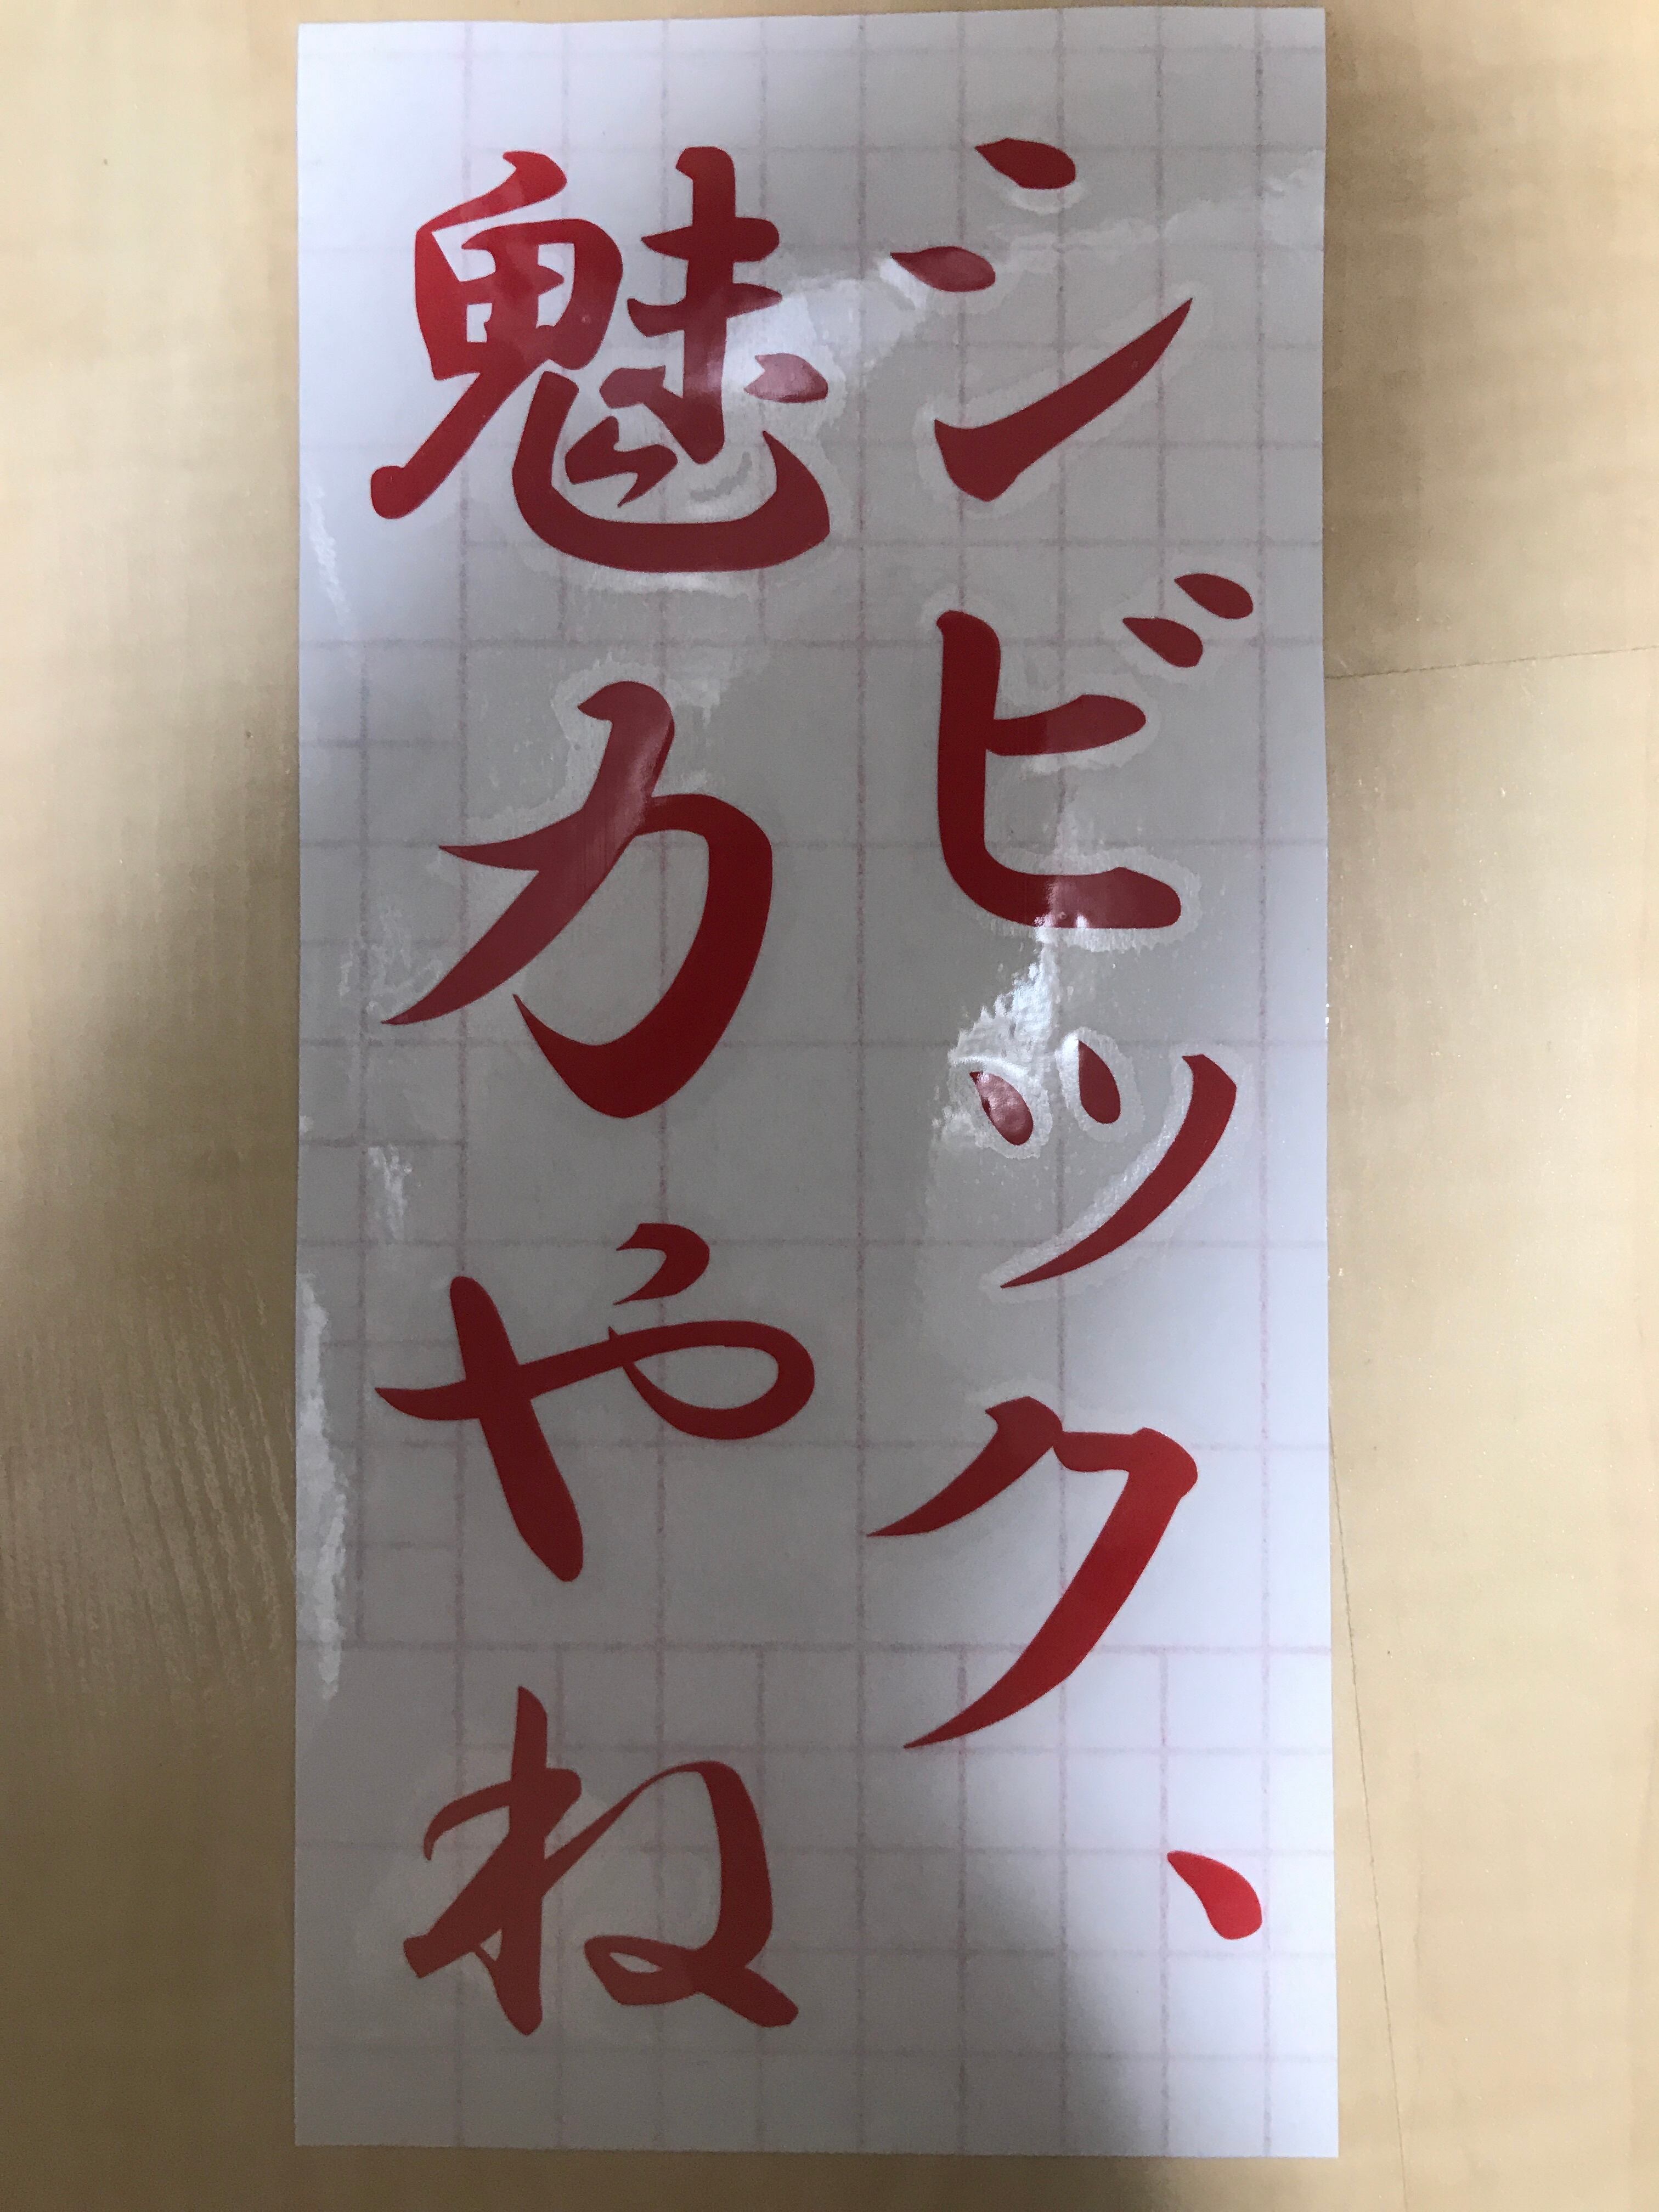 シビック、
魅力やね